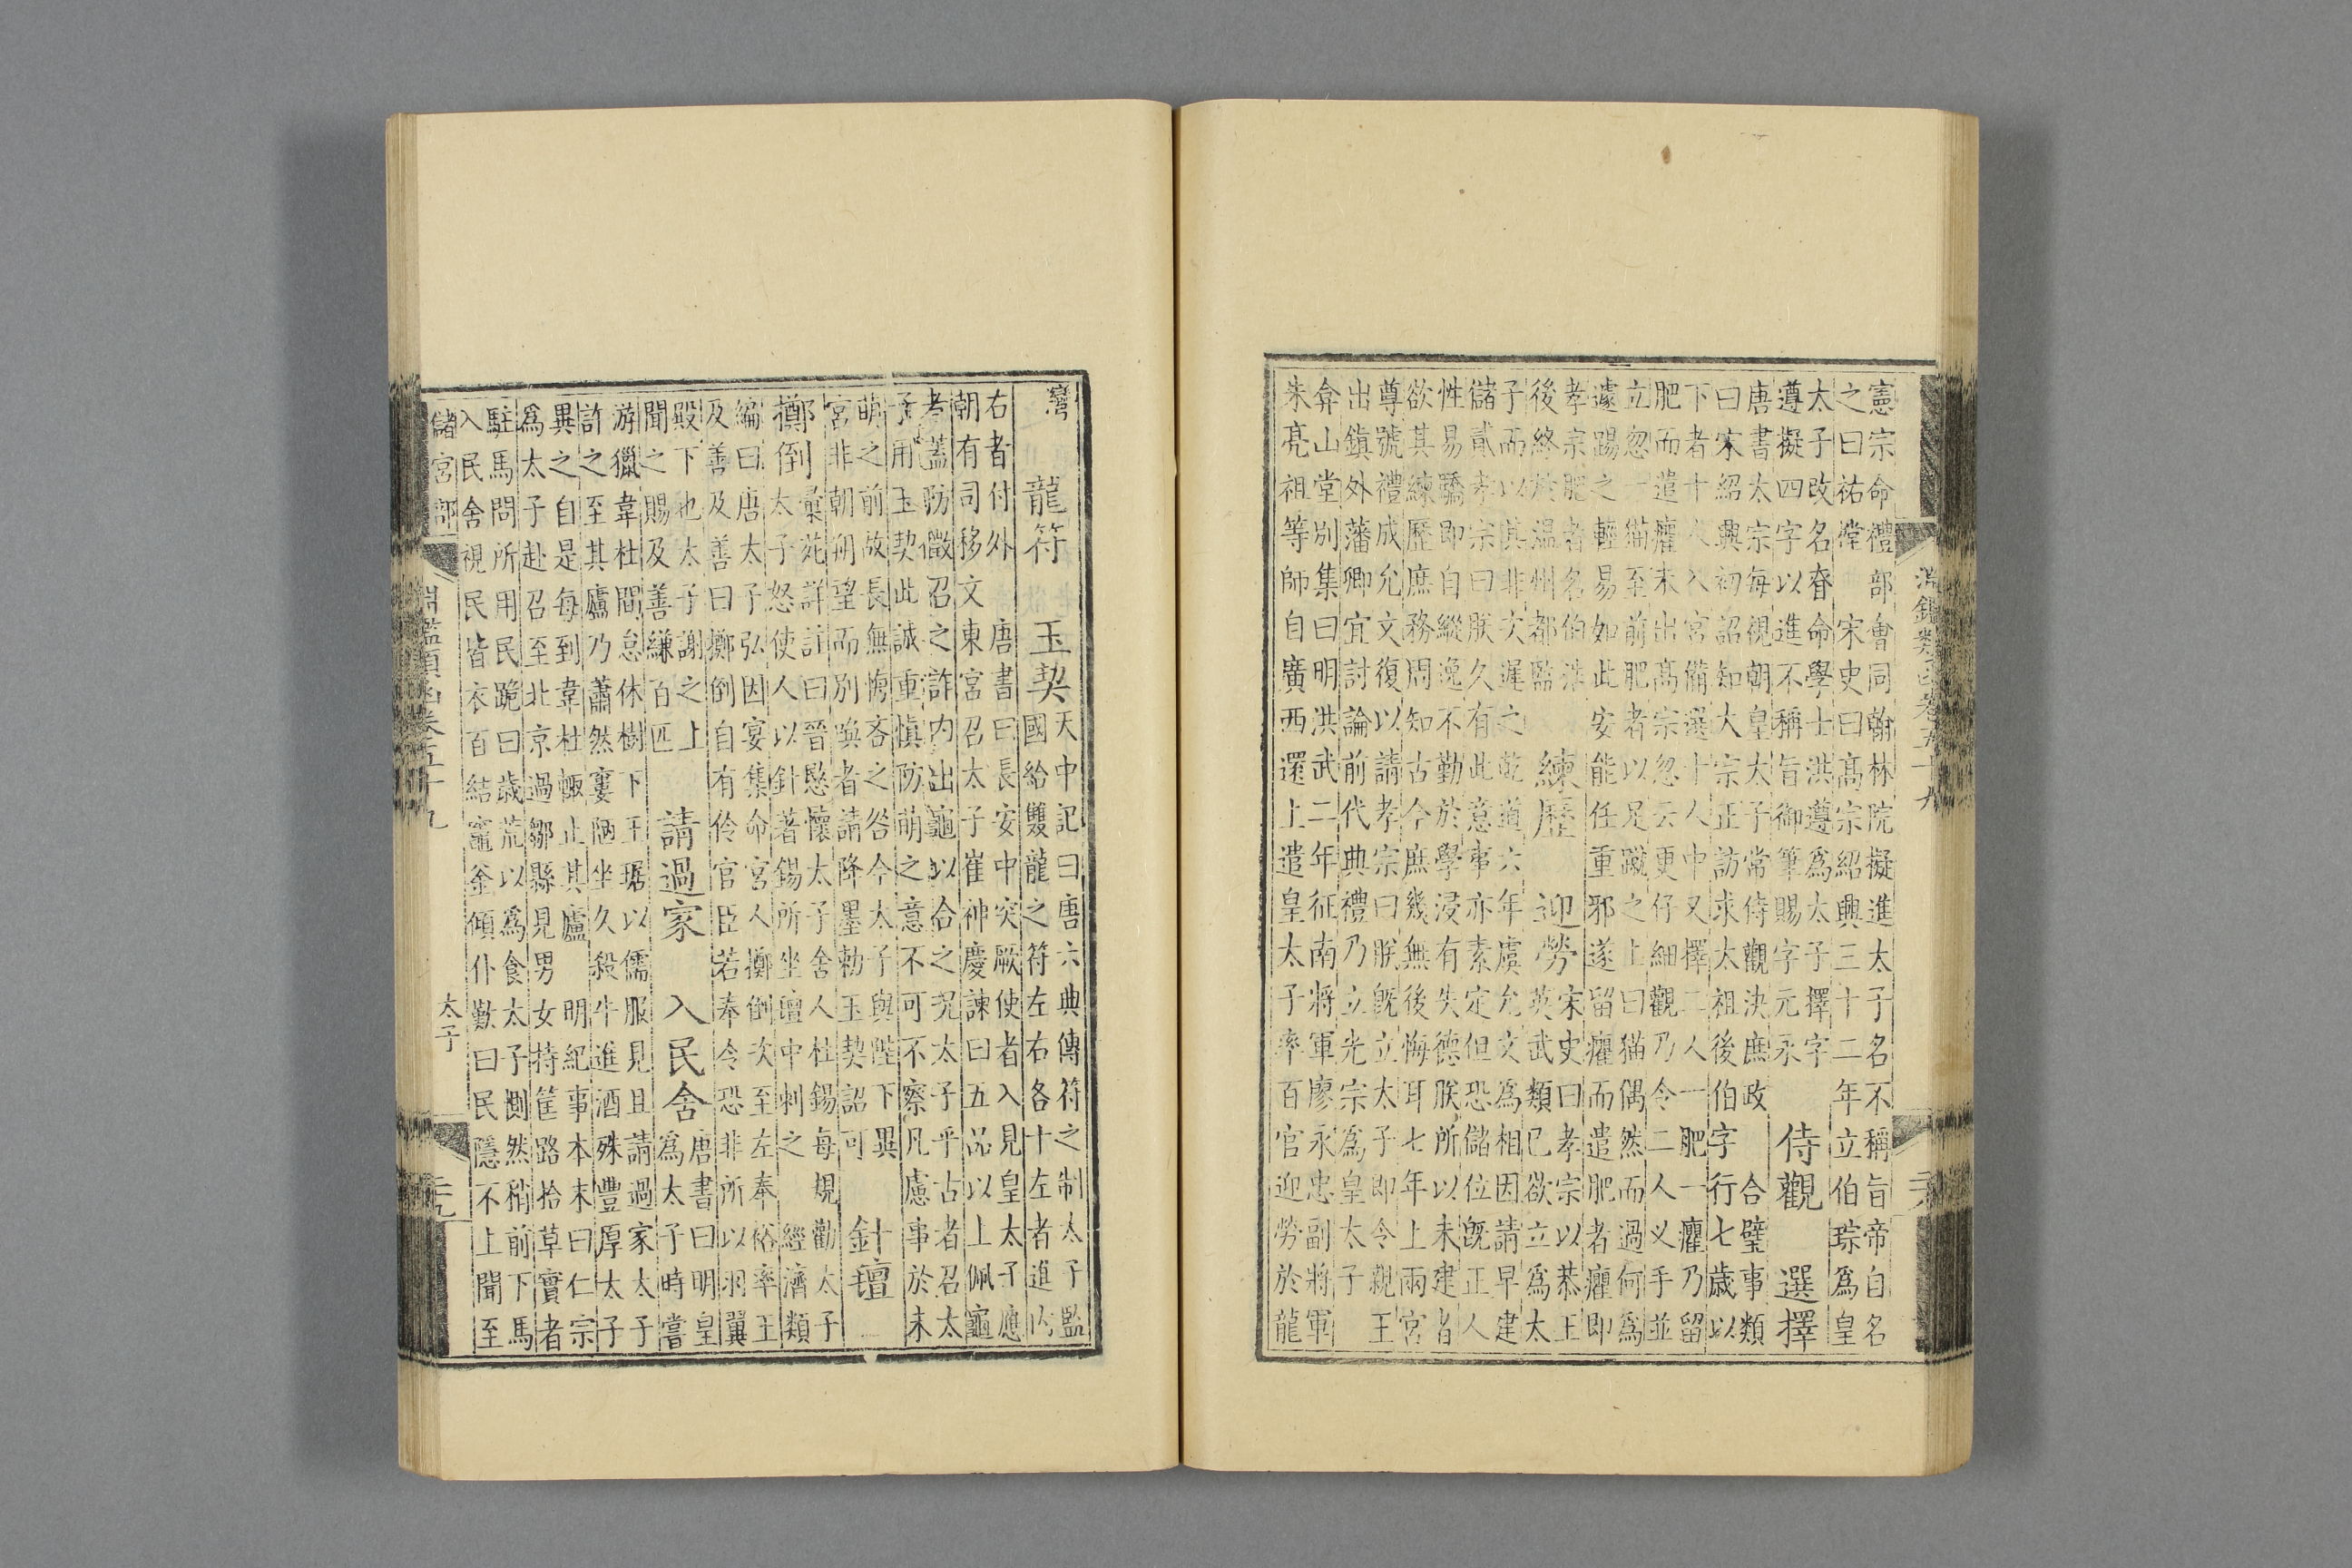 淵鑑類函卷五十九
憲宗命禮部會同翰林院擬進太子名不稱旨帝自名
之曰祐樘 宋史曰髙宗紹興三十二年立伯琮爲皇
太子改名眘命學士洪遵爲太子擇字
遵擬四字以進不稱旨御筆賜字元永
侍觀 選擇
唐書太宗每視朝皇太子常侍觀決庶政 合璧事類
曰宋紹興初詔知大宗正訪求太祖後伯字行七歲以
下者十人入宮備選十人中又擇二人一肥一癯乃留
肥而遣癯未出髙宗忽云更仔細觀乃令二人乂手並
立忽一猫至前肥者以足蹴之上曰猫偶然而過何爲
遽踢之輕易如此安能任重邪遂留癯而遣肥者癯即
孝宗肥者名伯浩
後終於溫州都監
練歷 迎勞
宋史曰孝宗以恭王
英武類已欲立爲太
子而以其非次遲之乾道六年虞允文爲相因請早建
儲貳孝宗曰朕久有此意事亦素定但恐儲位既正人
性易驕即自縱逸不勤於學浸有失德朕所以未建者
欲其練歷庶務周知古今庶幾無後悔耳七年上兩宮
尊號禮成允文復以請孝宗曰朕既立太子即令親王
出鎮外藩卿宜討論前代典禮乃立光宗爲皇太子
弇山堂別集曰明洪武二年征南將軍廖永忠副將軍
朱亮祖等師自廣西還上遣皇太子率百官迎勞於龍
灣
龍符 玉契
天中記曰唐六典傳符之制太子監
國給雙龍之符左右各十左者進内
右者付外 唐書曰長安中突厥使者入見皇太子應
朝有司移文東宮召太子崔神慶諫曰五品以上佩龜
者蓋防微召之詐内出龜以合之況太子乎古者召太
子用玉契此誠重慎防萌之意不可不察凡慮事於未
萌之前故長無悔吝之咎今太子與陛下異
宮非朝朔望而別喚者請降墨勅玉契詔可
針氊
擲倒
彙苑詳註曰晉愍懷太子舍人杜錫每規勸太子
太子怒使人以針著錫所坐氊中刺之 經濟類
編曰唐太子弘因宴集命宮人擲倒次至左奉裕率王
及善及善曰擲倒自有伶官臣若奉令恐非所以羽翼
殿下也太子謝之上
聞之賜及善縑百匹
請過家 入民舍
唐書曰明皇
爲太子時嘗
游獵韋杜間怠休樹下王琚以儒服見且請過家太子
許之至其廬乃蕭然窶陋坐久殺牛進酒殊豐厚太子
異之自是每到韋杜輒止其廬 明紀事本末曰仁宗
爲太子赴召至北京過鄒縣見男女持筐路拾草實者
駐馬問所用民跪曰歲荒以爲食太子惻然稍前下馬
入民舍視民皆衣百結竈釜傾仆歎曰民隱不上聞至
儲宮部 淵鑑類函卷五十九 太子